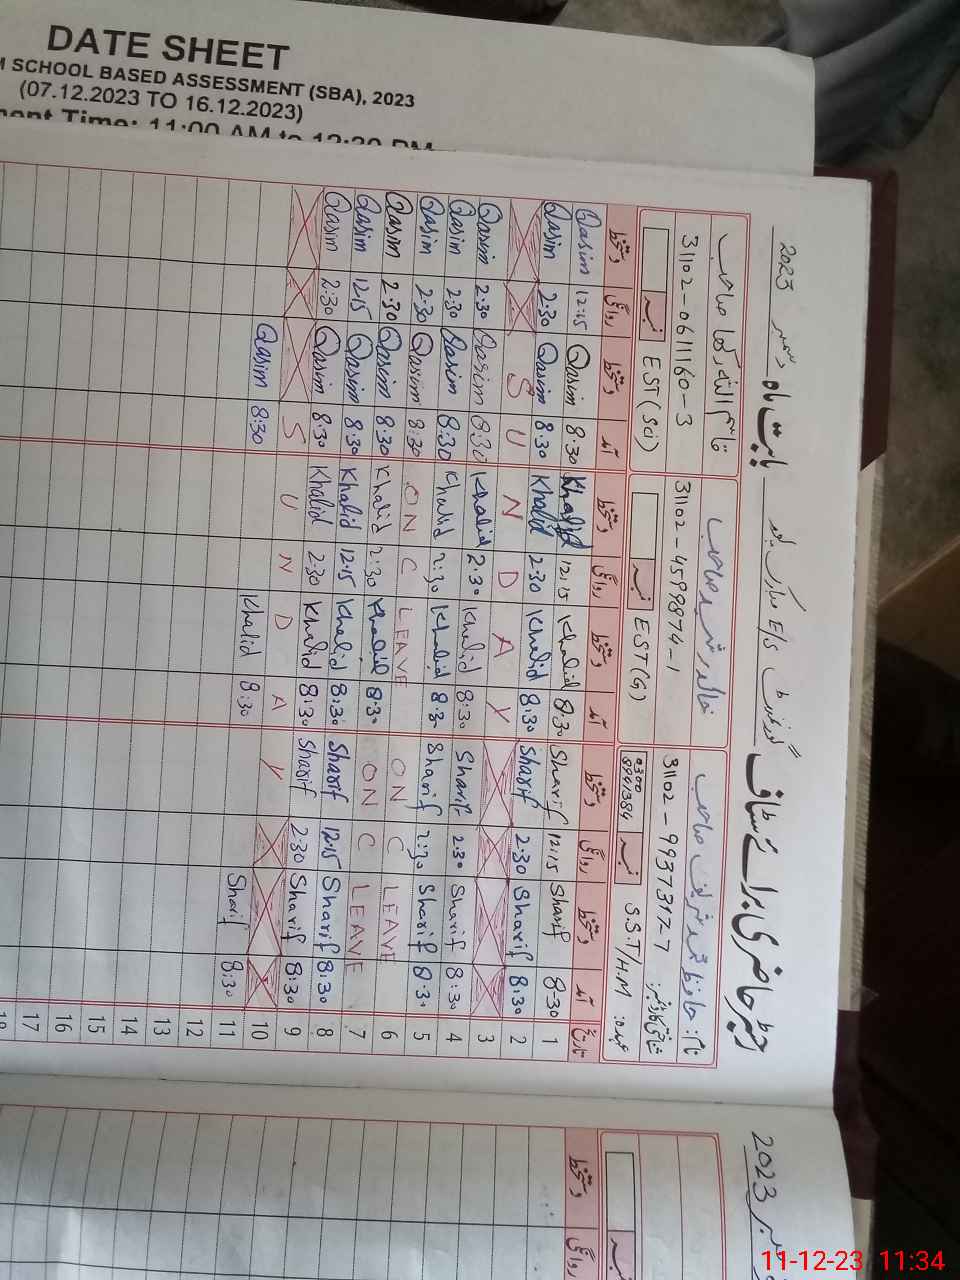 DATE SHEET
M SCHOOL BASED ASSESSMENT (SBA), 2023
(07.12.2023 TO 16.12.2023)
ment Time: 11:00 AM to 12:30 PM
رجسٹر حاضری برائے سٹاف گورنمنٹ E/S بابت ماہ دسمبر 2023
نام: حافظ محمد شریف صاحب خالد رشید صاحب قاسم اللہ صاحب
شناختی کارڈ نمبر: 31102-9937317-7 31102-4599874-1 31102-0611160-3
عہدہ: S.S.T/H.M نمبر 0300 8941384 EST(G) نمبر EST(Sci) نمبر
تاریخ آمد دستخط روانگی دستخط آمد دستخط روانگی دستخط آمد دستخط روانگی دستخط
1 8:30 Sharif 12:15 Sharif 8:30 Khalid 12:15 Khalid 8:30 Qasim 12:15 Qasim
2 8:30 Sharif 2:30 Sharif 8:30 Khalid 2:30 Khalid 8:30 Qasim 2:30 Qasim
3 S U N D A Y
4 8:30 Sharif 2:30 Sharif 8:30 Khalid 2:30 Khalid 8:30 Qasim 2:30 Qasim
5 8:30 Sharif 2:30 Sharif 8:30 Khalid 2:30 Khalid 8:30 Qasim 2:30 Qasim
6 ON C LEAVE ON C LEAVE 8:30 Qasim 2:30 Qasim
7 ON C LEAVE 8:30 Khalid 2:30 Khalid 8:30 Qasim 2:30 Qasim
8 8:30 Sharif 12:15 Sharif 8:30 Khalid 12:15 Khalid 8:30 Qasim 12:15 Qasim
9 8:30 Sharif 2:30 Sharif 8:30 Khalid 2:30 Khalid 8:30 Qasim 2:30 Qasim
10 S U N D A Y
11 8:30 Sharif 8:30 Khalid 8:30 Qasim
12
13
14
15
16
17
18
2023
نمبر
دستخط روانگی
11-12-23 11:34